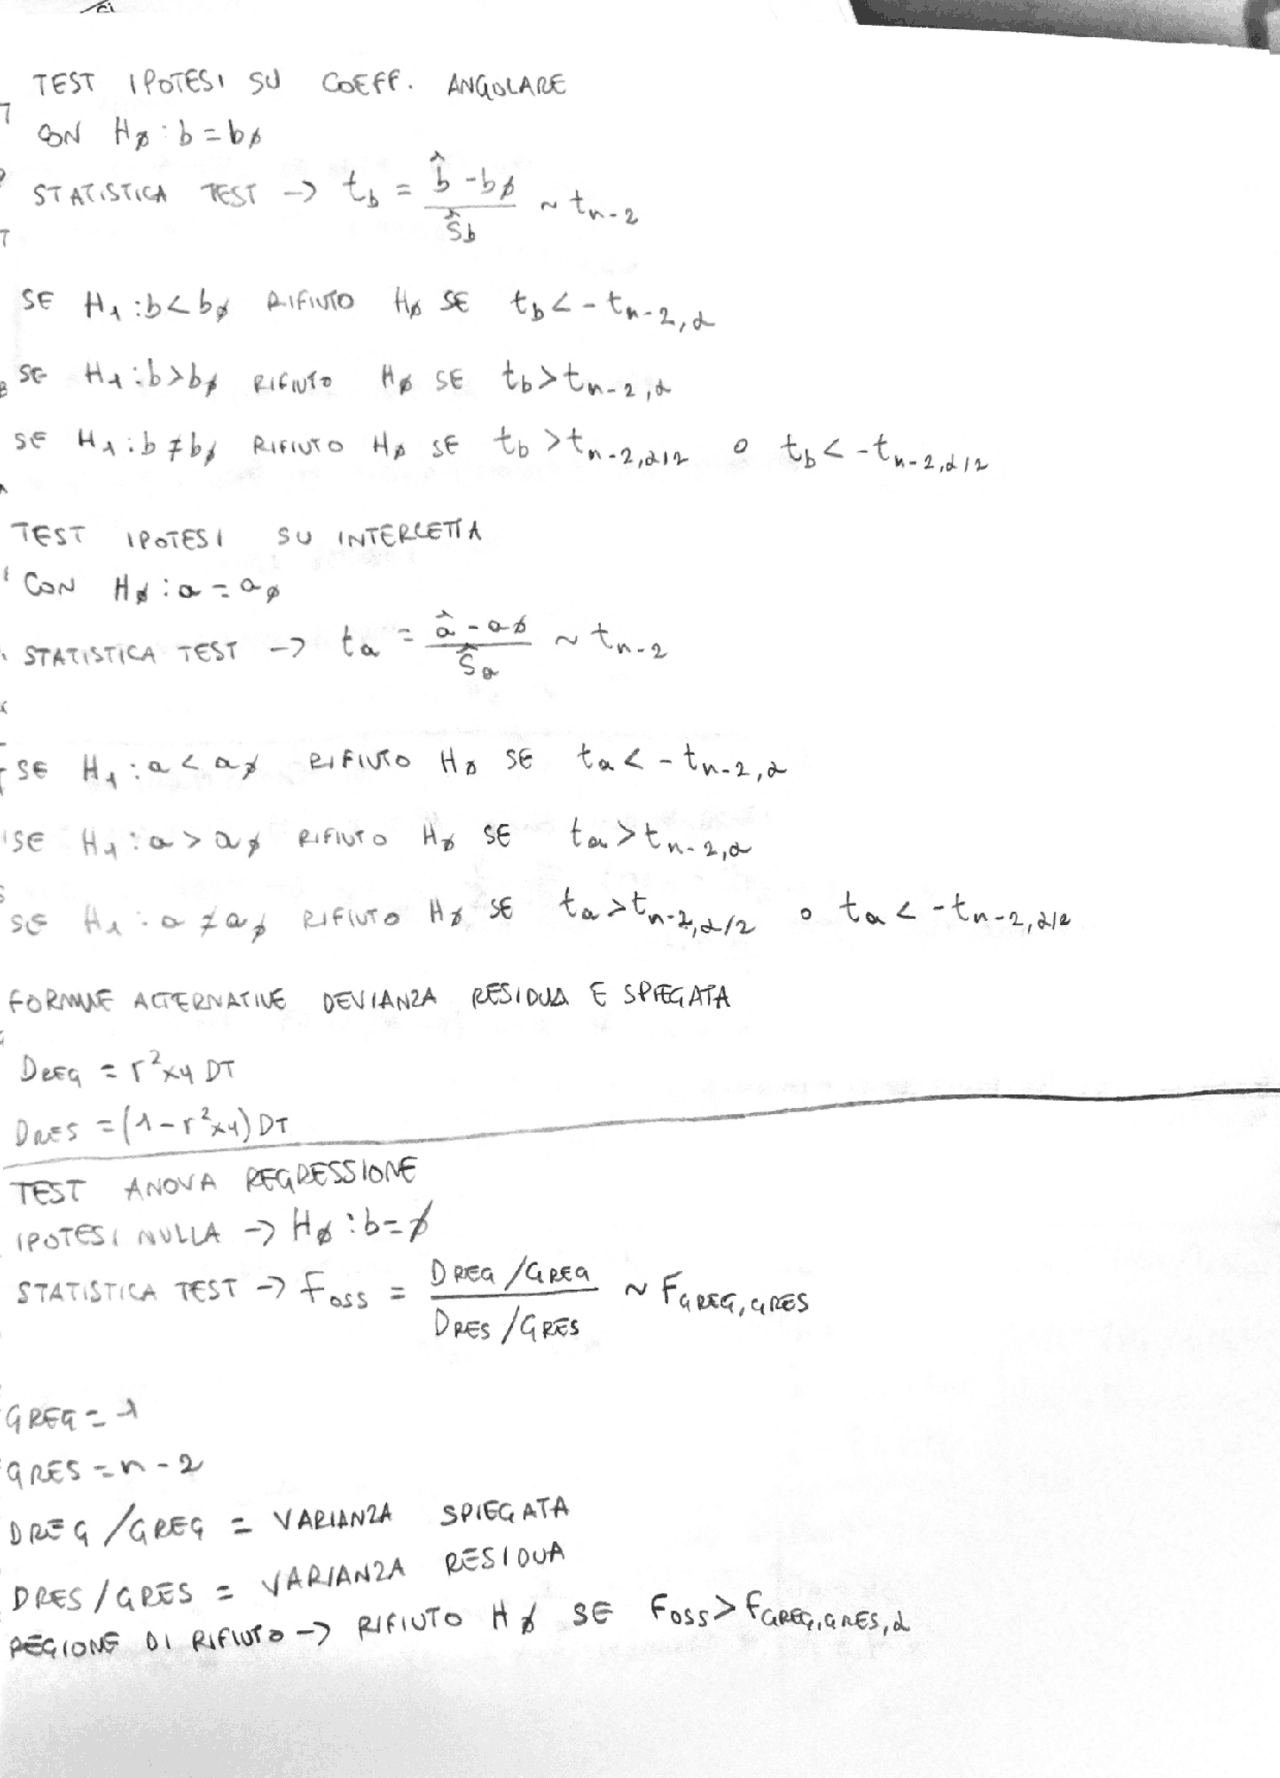 TEST IPOTESI SU COEFF. ANGOLARE
CON H∅ : b = b∅
STATISTICA TEST -> t_b = (b̂ - b∅) / ŝ_b ~ t_n-2
SE H1 : b < b∅ RIFIUTO H∅ SE t_b < - t_n-2,α
SE H1 : b > b∅ RIFIUTO H∅ SE t_b > t_n-2,α
SE H1 : b ≠ b∅ RIFIUTO H∅ SE t_b > t_n-2,α/2 o t_b < - t_n-2,α/2
TEST IPOTESI SU INTERCETTA
CON H∅ : a = a∅
STATISTICA TEST -> t_a = (â - a∅) / ŝ_a ~ t_n-2
SE H1 : a < a∅ RIFIUTO H∅ SE t_a < - t_n-2,α
SE H1 : a > a∅ RIFIUTO H∅ SE t_a > t_n-2,α
SE H1 : a ≠ a∅ RIFIUTO H∅ SE t_a > t_n-2,α/2 o t_a < - t_n-2,α/2
FORMULE ALTERNATIVE DEVIANZA RESIDUA E SPIEGATA
DREG = r²xy DT
DRES = (1 - r²xy) DT
TEST ANOVA REGRESSIONE
IPOTESI NULLA -> H∅ : b = ∅
STATISTICA TEST -> F_OSS = (DREG / GREG) / (DRES / GRES) ~ F_GREG, GRES
GREG = 1
GRES = n - 2
DREG / GREG = VARIANZA SPIEGATA
DRES / GRES = VARIANZA RESIDUA
REGIONE DI RIFIUTO -> RIFIUTO H∅ SE F_OSS > F_GREG, GRES, α